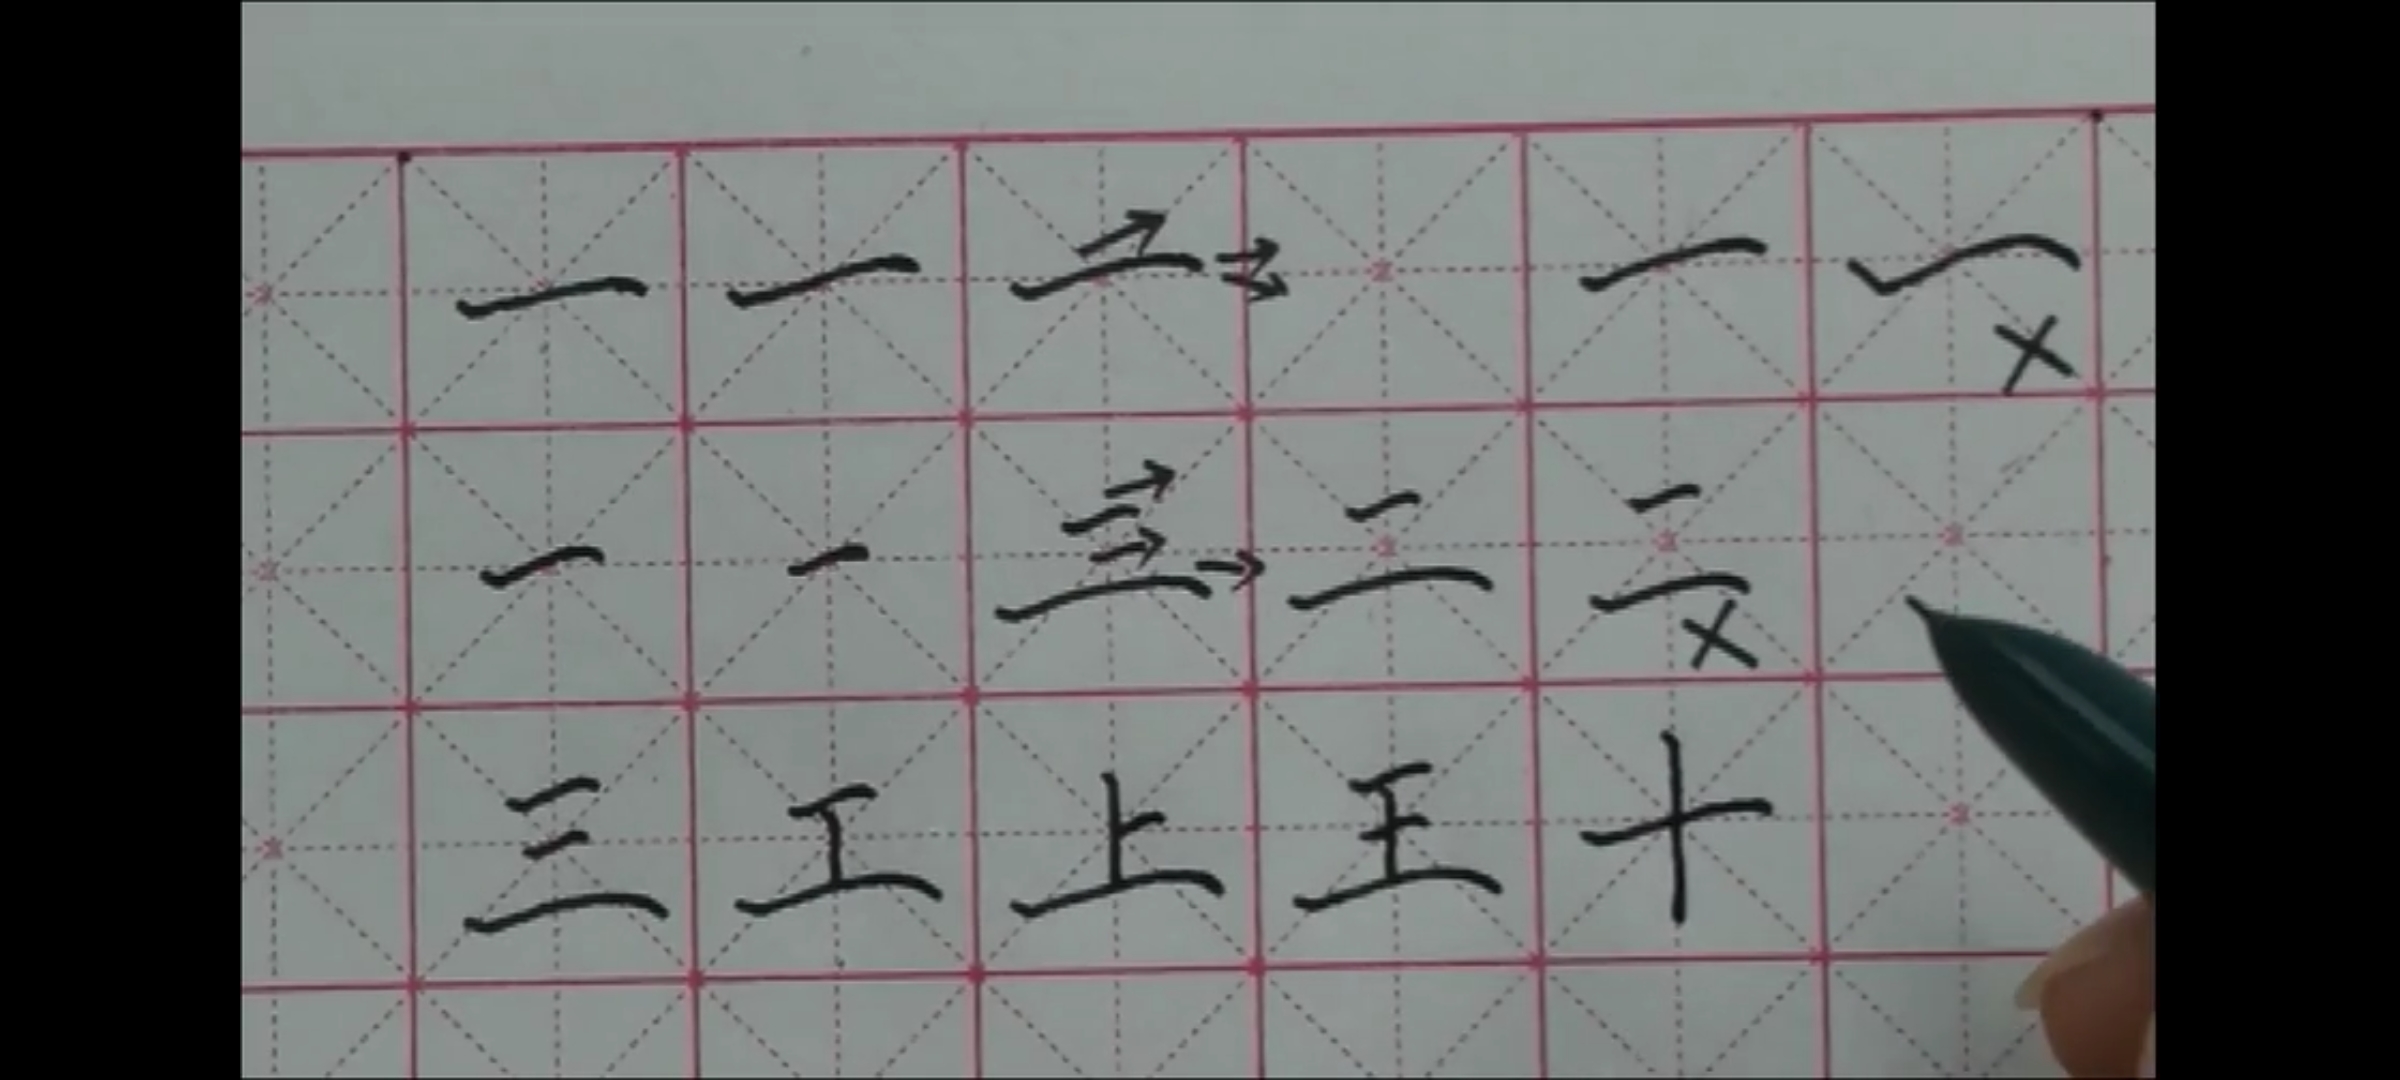 一 一 一 → → → 一 一 ×
一 一 二 → → → 二 二 ×
三 工 上 王 十